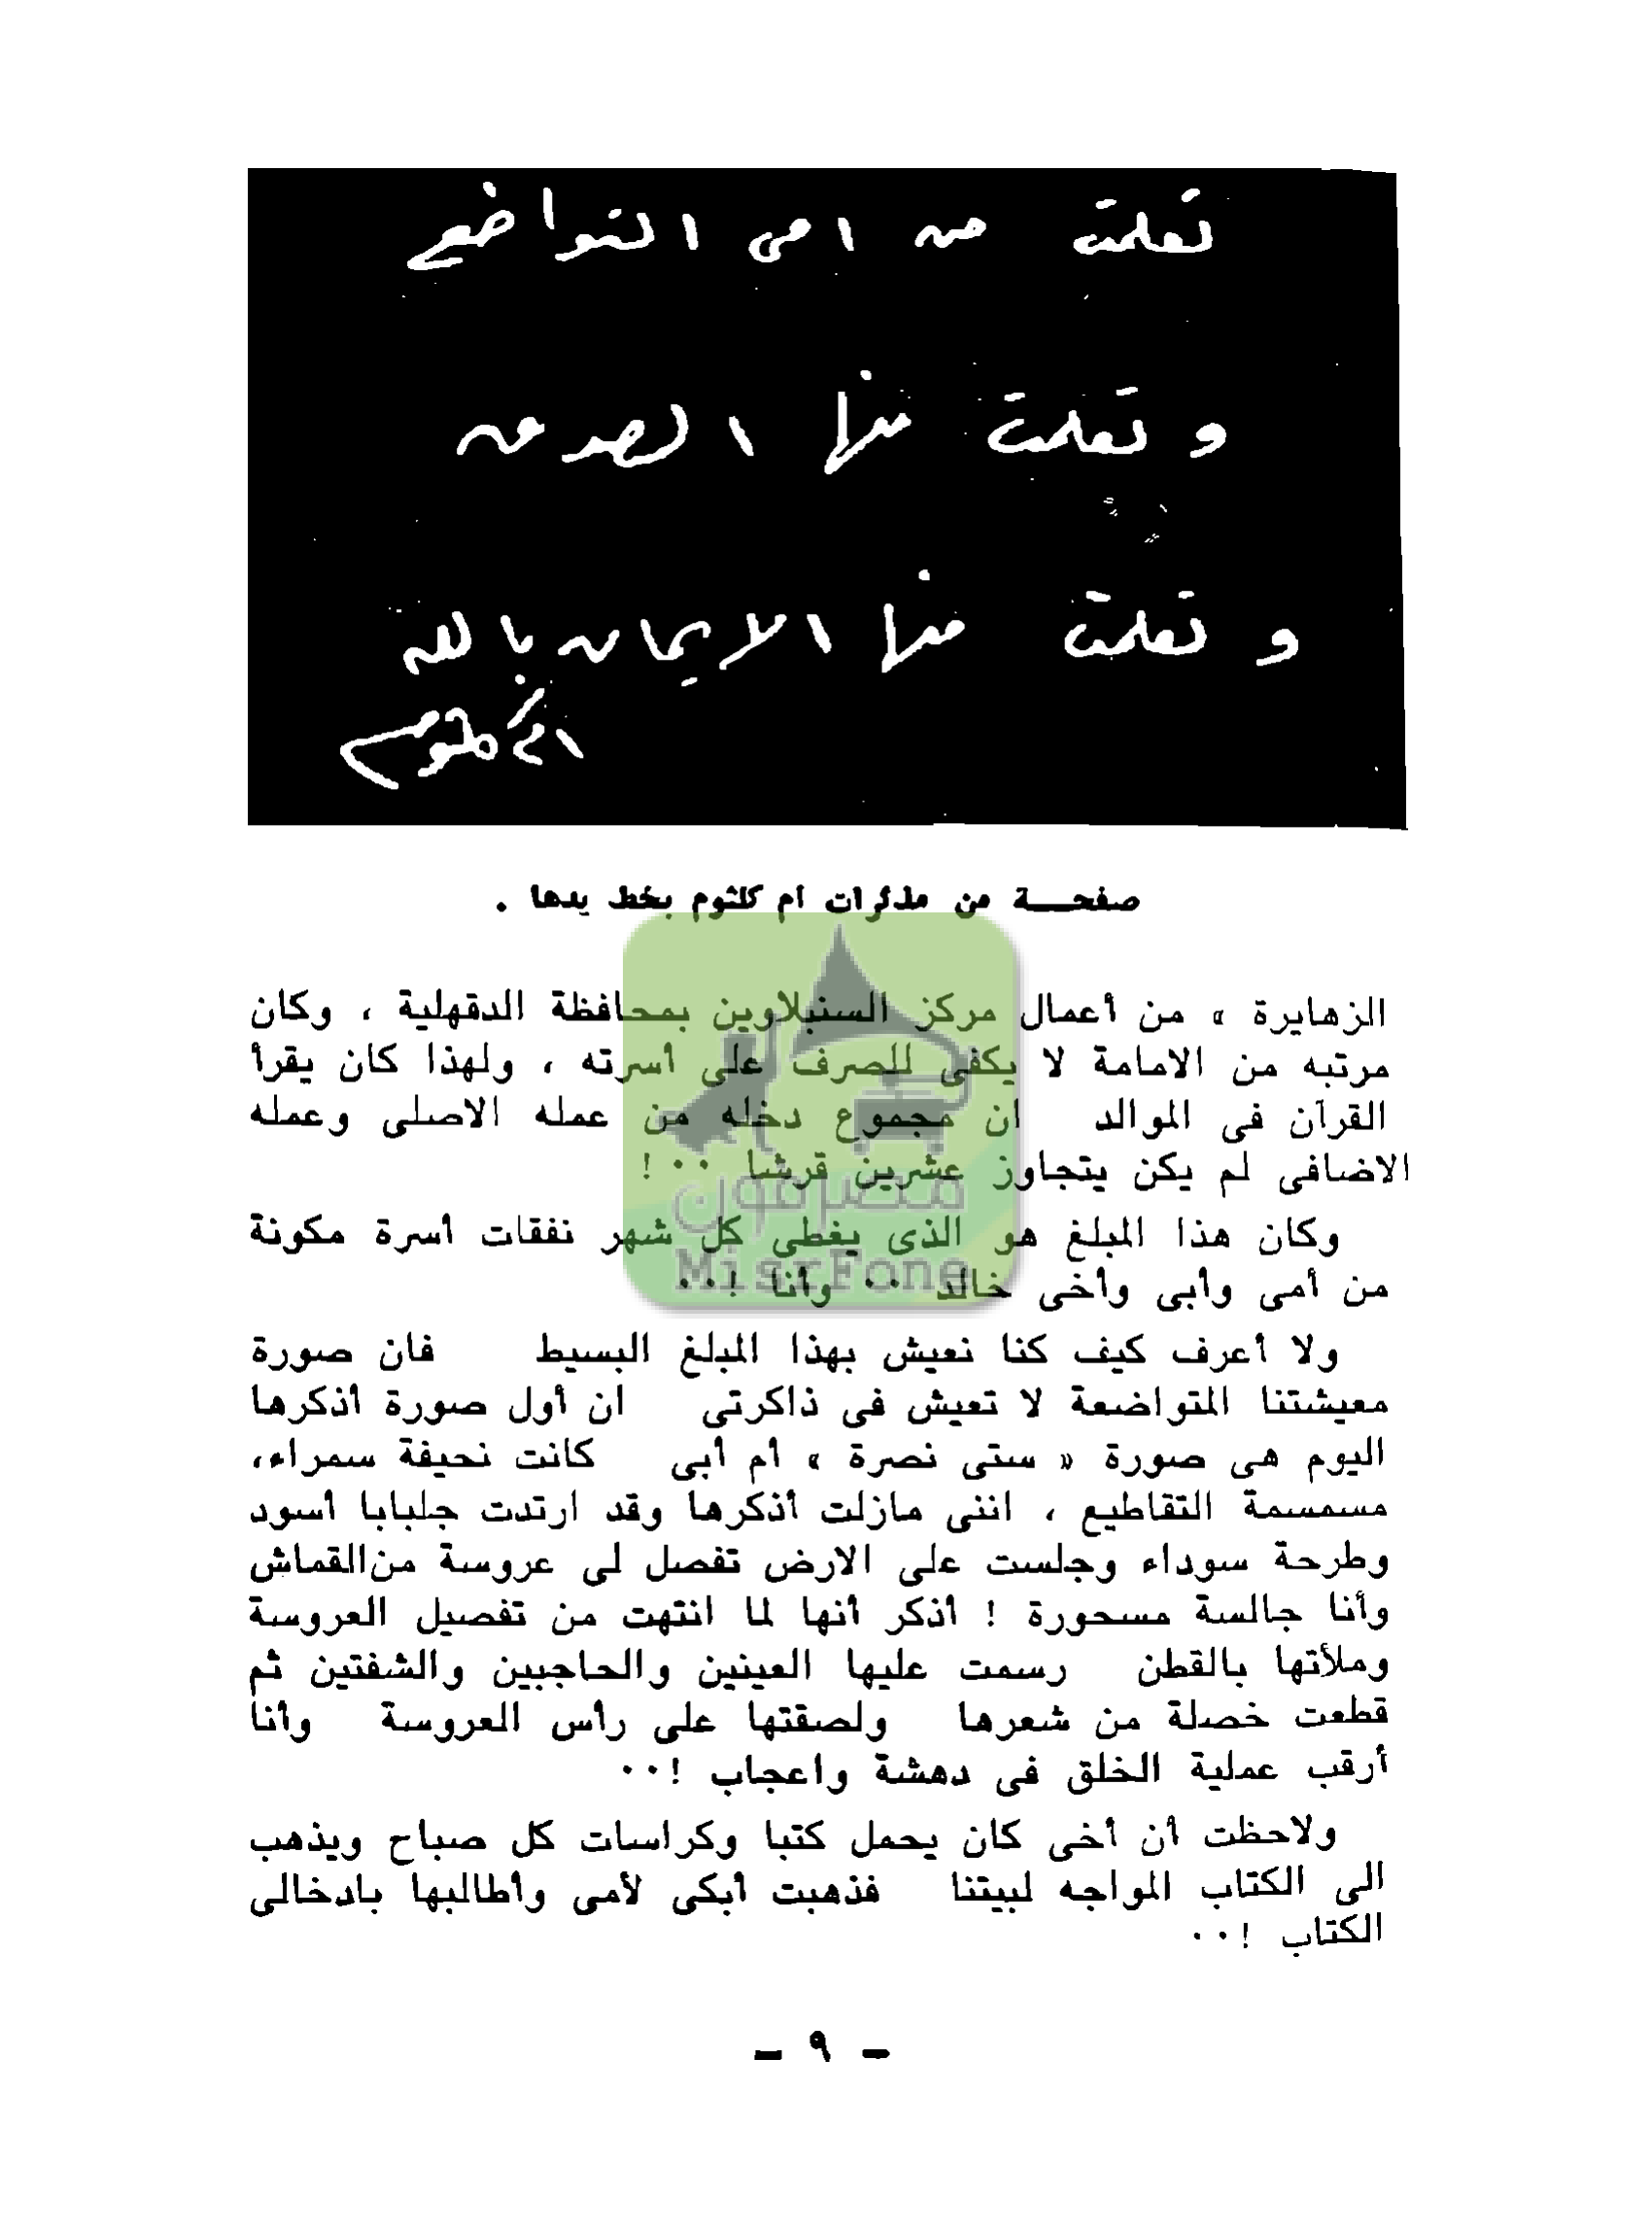 تعلمت من امى التواضع
و تعلمت منها الصدق
و تعلمت منها الايمان بالله
ام كلثوم
صفحة من مذكرات أم كلثوم بخط يدها .
الزهايرة » من أعمال مركز السنبلاوين بمحافظة الدقهلية ، وكان
مرتبه من الامامة لا يكفى للصرف على أسرته ، ولهذا كان يقرأ
القرآن فى الموالد ان مجموع دخله من عمله الاصلى وعمله
الاضافى لم يكن يتجاوز عشرين قرشا ٠٠ !
وكان هذا المبلغ هو الذى يغطى كل شهر نفقات أسرة مكونة
من أمى وأبى وأخى خالد ٠٠ وأنا !٠٠
ولا أعرف كيف كنا نعيش بهذا المبلغ البسيط فان صورة
معيشتنا المتواضعة لا تعيش فى ذاكرتى ان أول صورة أذكرها
اليوم هى صورة « ستى نصرة » أم أبى كانت نحيفة سمراء،
مسمسمة التقاطيع ، اننى مازلت أذكرها وقد ارتدت جلبابا أسود
وطرحة سوداء وجلست على الارض تفصل لى عروسة من القماش
وأنا جالسة مسحورة ! أذكر أنها لما انتهت من تفصيل العروسة
وملأتها بالقطن رسمت عليها العينين والحاجبين والشفتين ثم
قطعت خصلة من شعرها ولصقتها على رأس العروسة وأنا
أرقب عملية الخلق فى دهشة واعجاب !٠٠
ولاحظت أن أخى كان يحمل كتبا وكراسات كل صباح ويذهب
الى الكتاب المواجه لبيتنا فذهبت أبكى لأمى وأطالبها بادخالى
الكتاب !٠٠
- ٩ -
مصرفون
MisrFone